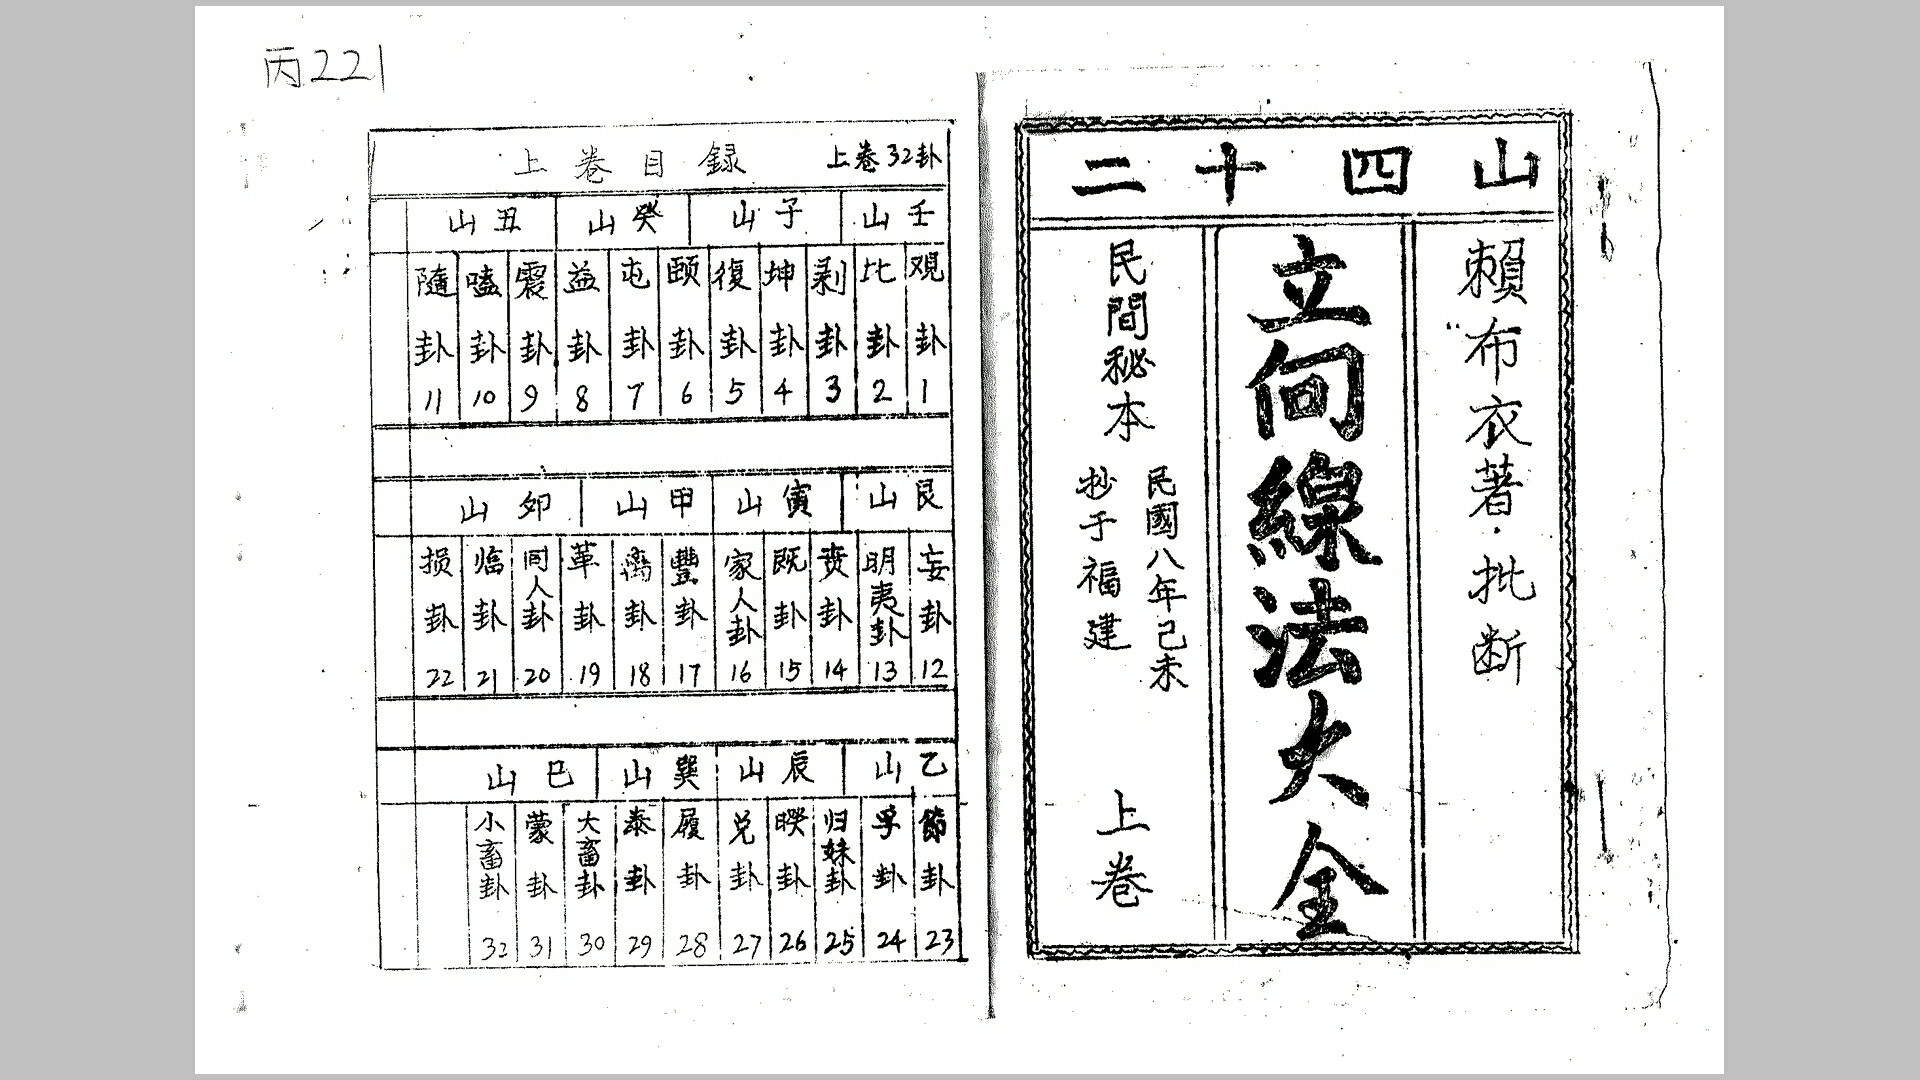 丙221
二十四山
賴布衣著·批断
立向線法大全
民間秘本
民國八年己未
抄于福建
上卷
上卷目録
上卷32卦
壬山
子山
癸山
丑山
观卦1
比卦2
剥卦3
坤卦4
復卦5
頤卦6
屯卦7
益卦8
震卦9
嗑卦10
隨卦11
艮山
寅山
甲山
卯山
妄卦12
明夷卦13
贲卦14
既卦15
家人卦16
豐卦17
离卦18
革卦19
同人卦20
临卦21
损卦22
乙山
辰山
巽山
巳山
節卦23
孚卦24
归妹卦25
睽卦26
兑卦27
履卦28
泰卦29
大畜卦30
蒙卦31
小畜卦32